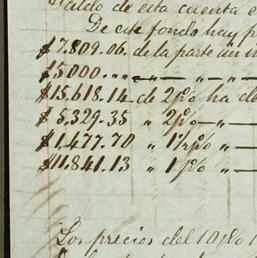 Saldo de esta cuenta e
De este fondo hay p
$7.809.06. de la parte un in
$5000.〃〃 — 〃 — 〃 —
$15.618.14 de 2p% ha de
$5.329.35 〃 2p% — 〃 —
$1.477.70 〃 1½p% 〃 —
$11.841.13 〃 1p% 〃 —
Los precios del 10p% 1